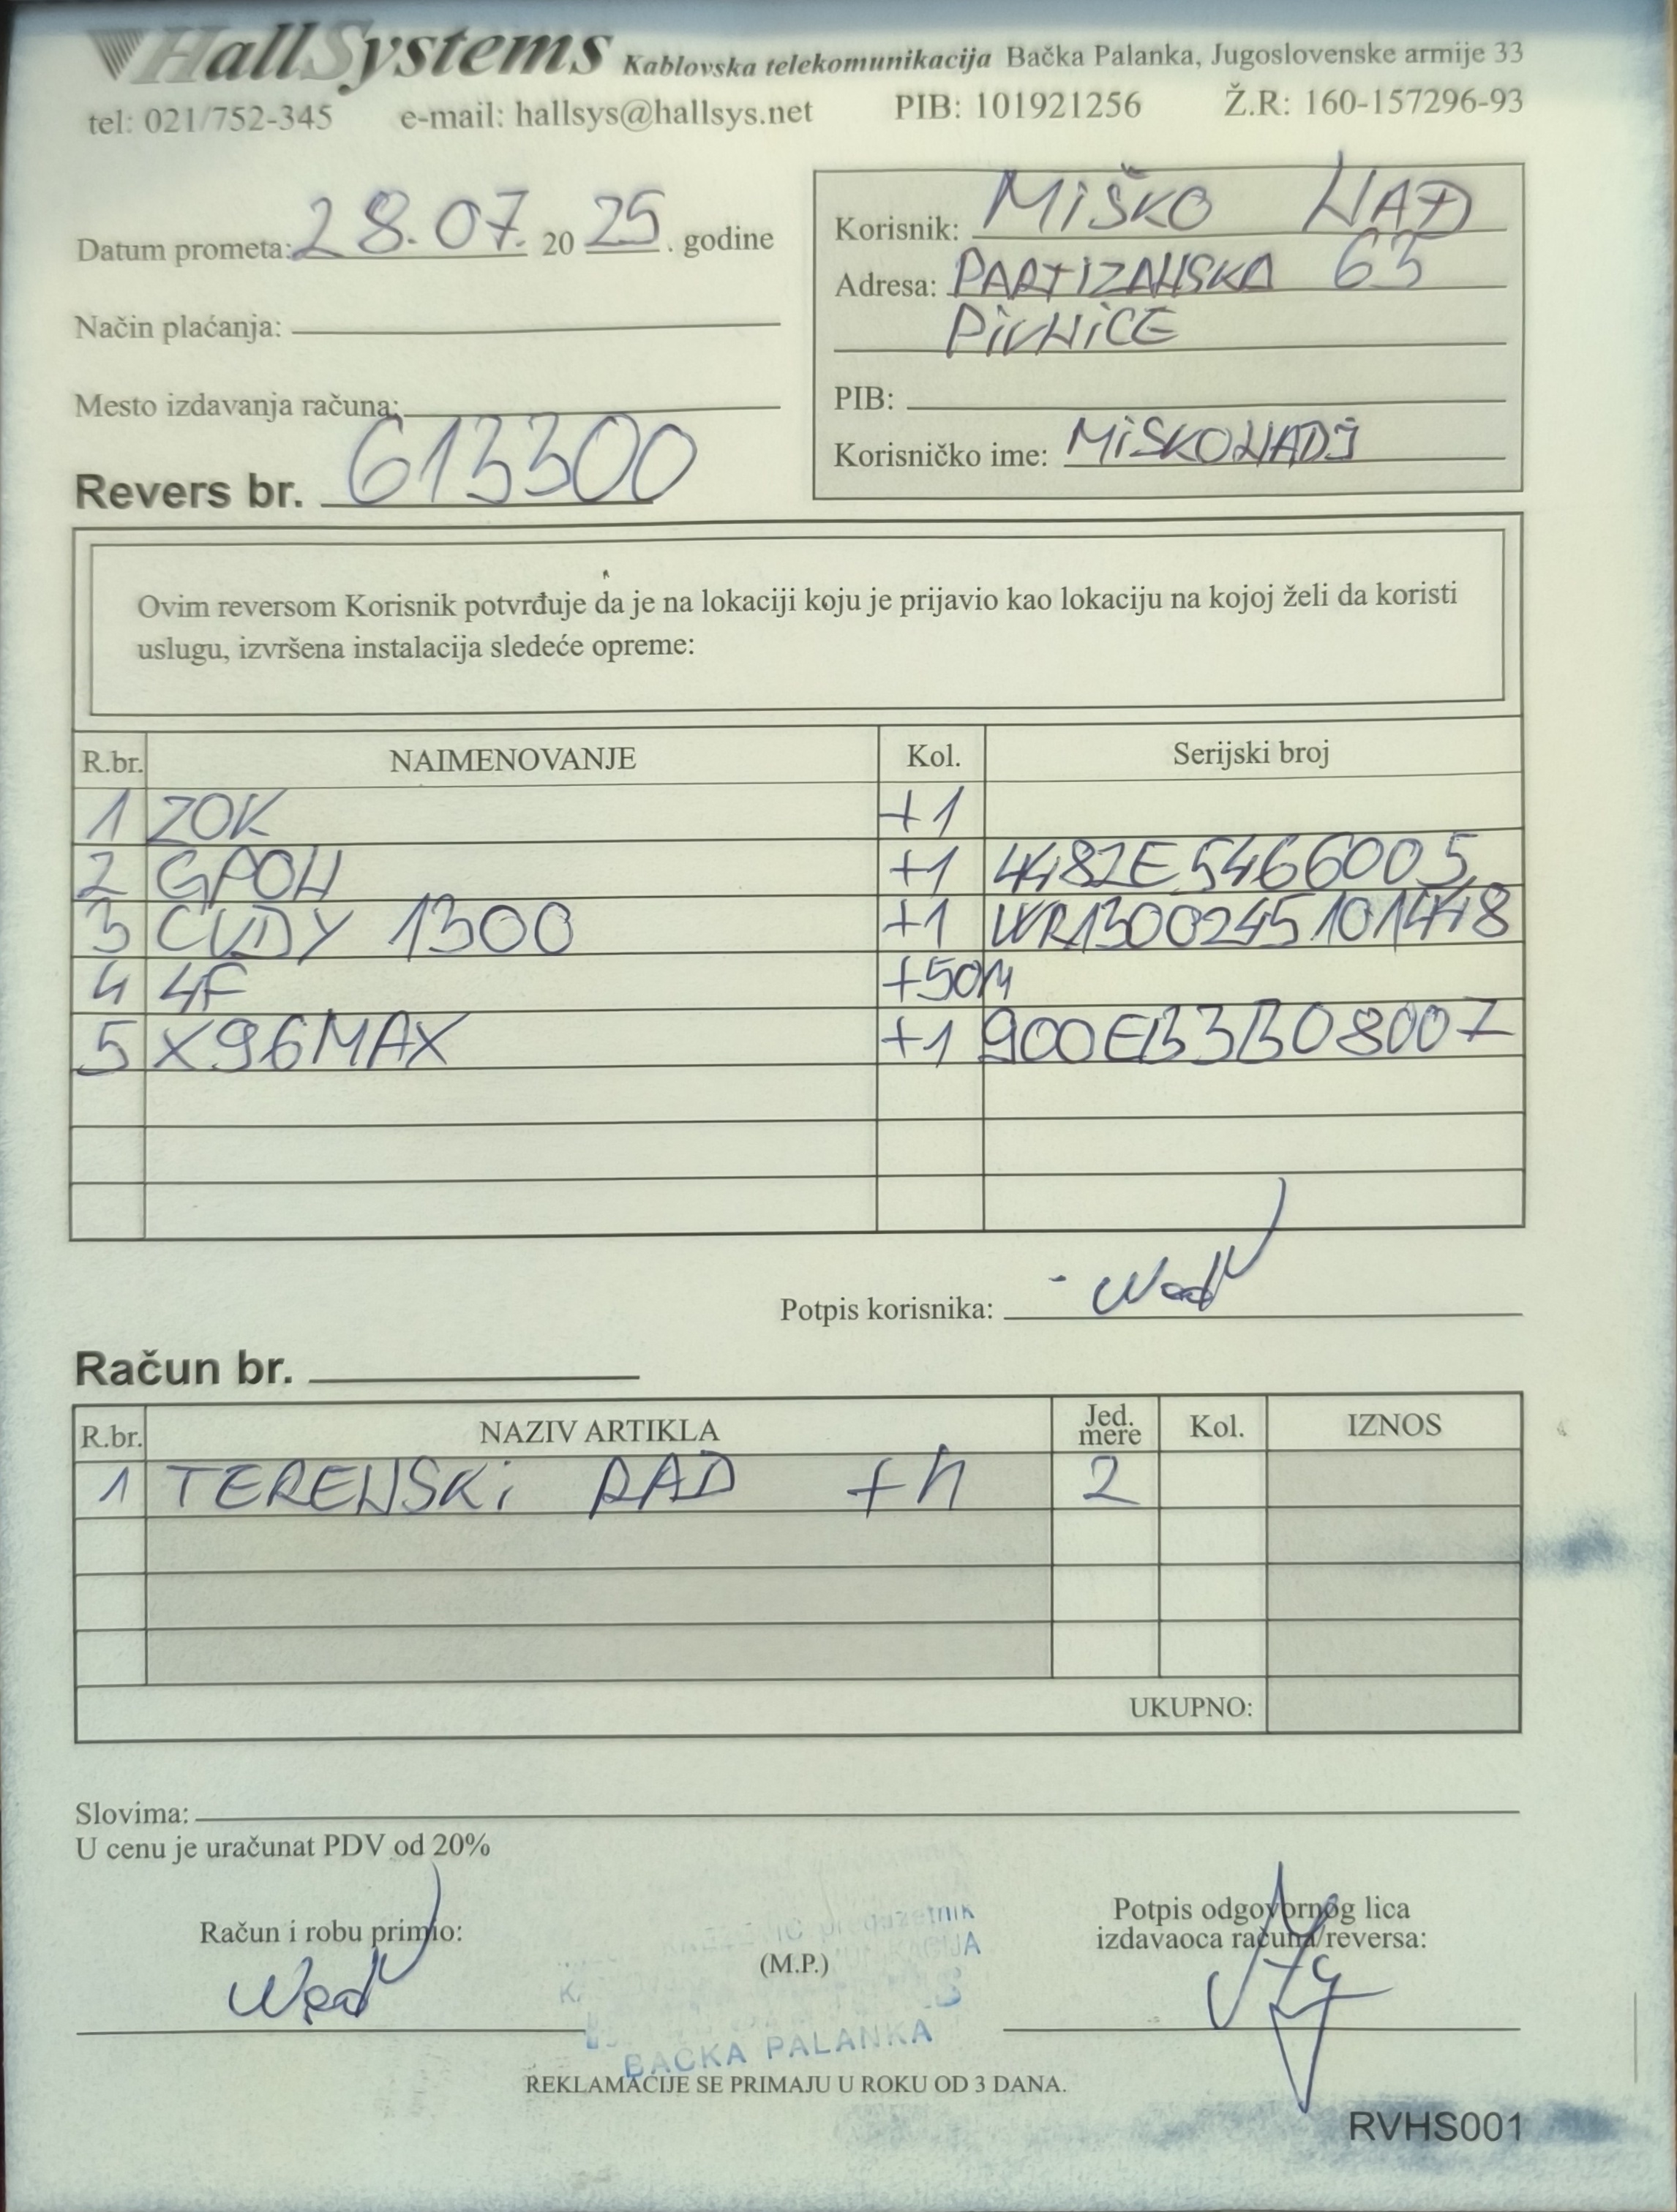 HallSystems Kablovska telekomunikacija Bačka Palanka, Jugoslovenske armije 33
tel: 021/752-345 e-mail: hallsys@hallsys.net PIB: 101921256 Ž.R: 160-157296-93
Datum prometa: 28.07. 20 25. godine
Način plaćanja:
Mesto izdavanja računa:
Revers br. 613300
Korisnik: MIŠKO NAĐ
Adresa: PARTIZANSKA 63
PIVNICE
PIB:
Korisničko ime: MISKONADJ
Ovim reversom Korisnik potvrđuje da je na lokaciji koju je prijavio kao lokaciju na kojoj želi da koristi
uslugu, izvršena instalacija sledeće opreme:
R.br. NAIMENOVANJE Kol. Serijski broj
1 ZOK +1
2 GPON +1 4482E5466005
3 CUDY 1300 +1 WR1300245101448
4 4F +50M
5 X96MAX +1 900EB3B08007
Potpis korisnika:
Račun br.
R.br. NAZIV ARTIKLA Jed. mere Kol. IZNOS
1 TERENSKI RAD +h 2
UKUPNO:
Slovima:
U cenu je uračunat PDV od 20%
Račun i robu primio:
(M.P.)
Potpis odgovornog lica
izdavaoca računa/reversa:
preduzetnik
BAČKA PALANKA
REKLAMACIJE SE PRIMAJU U ROKU OD 3 DANA.
RVHS001